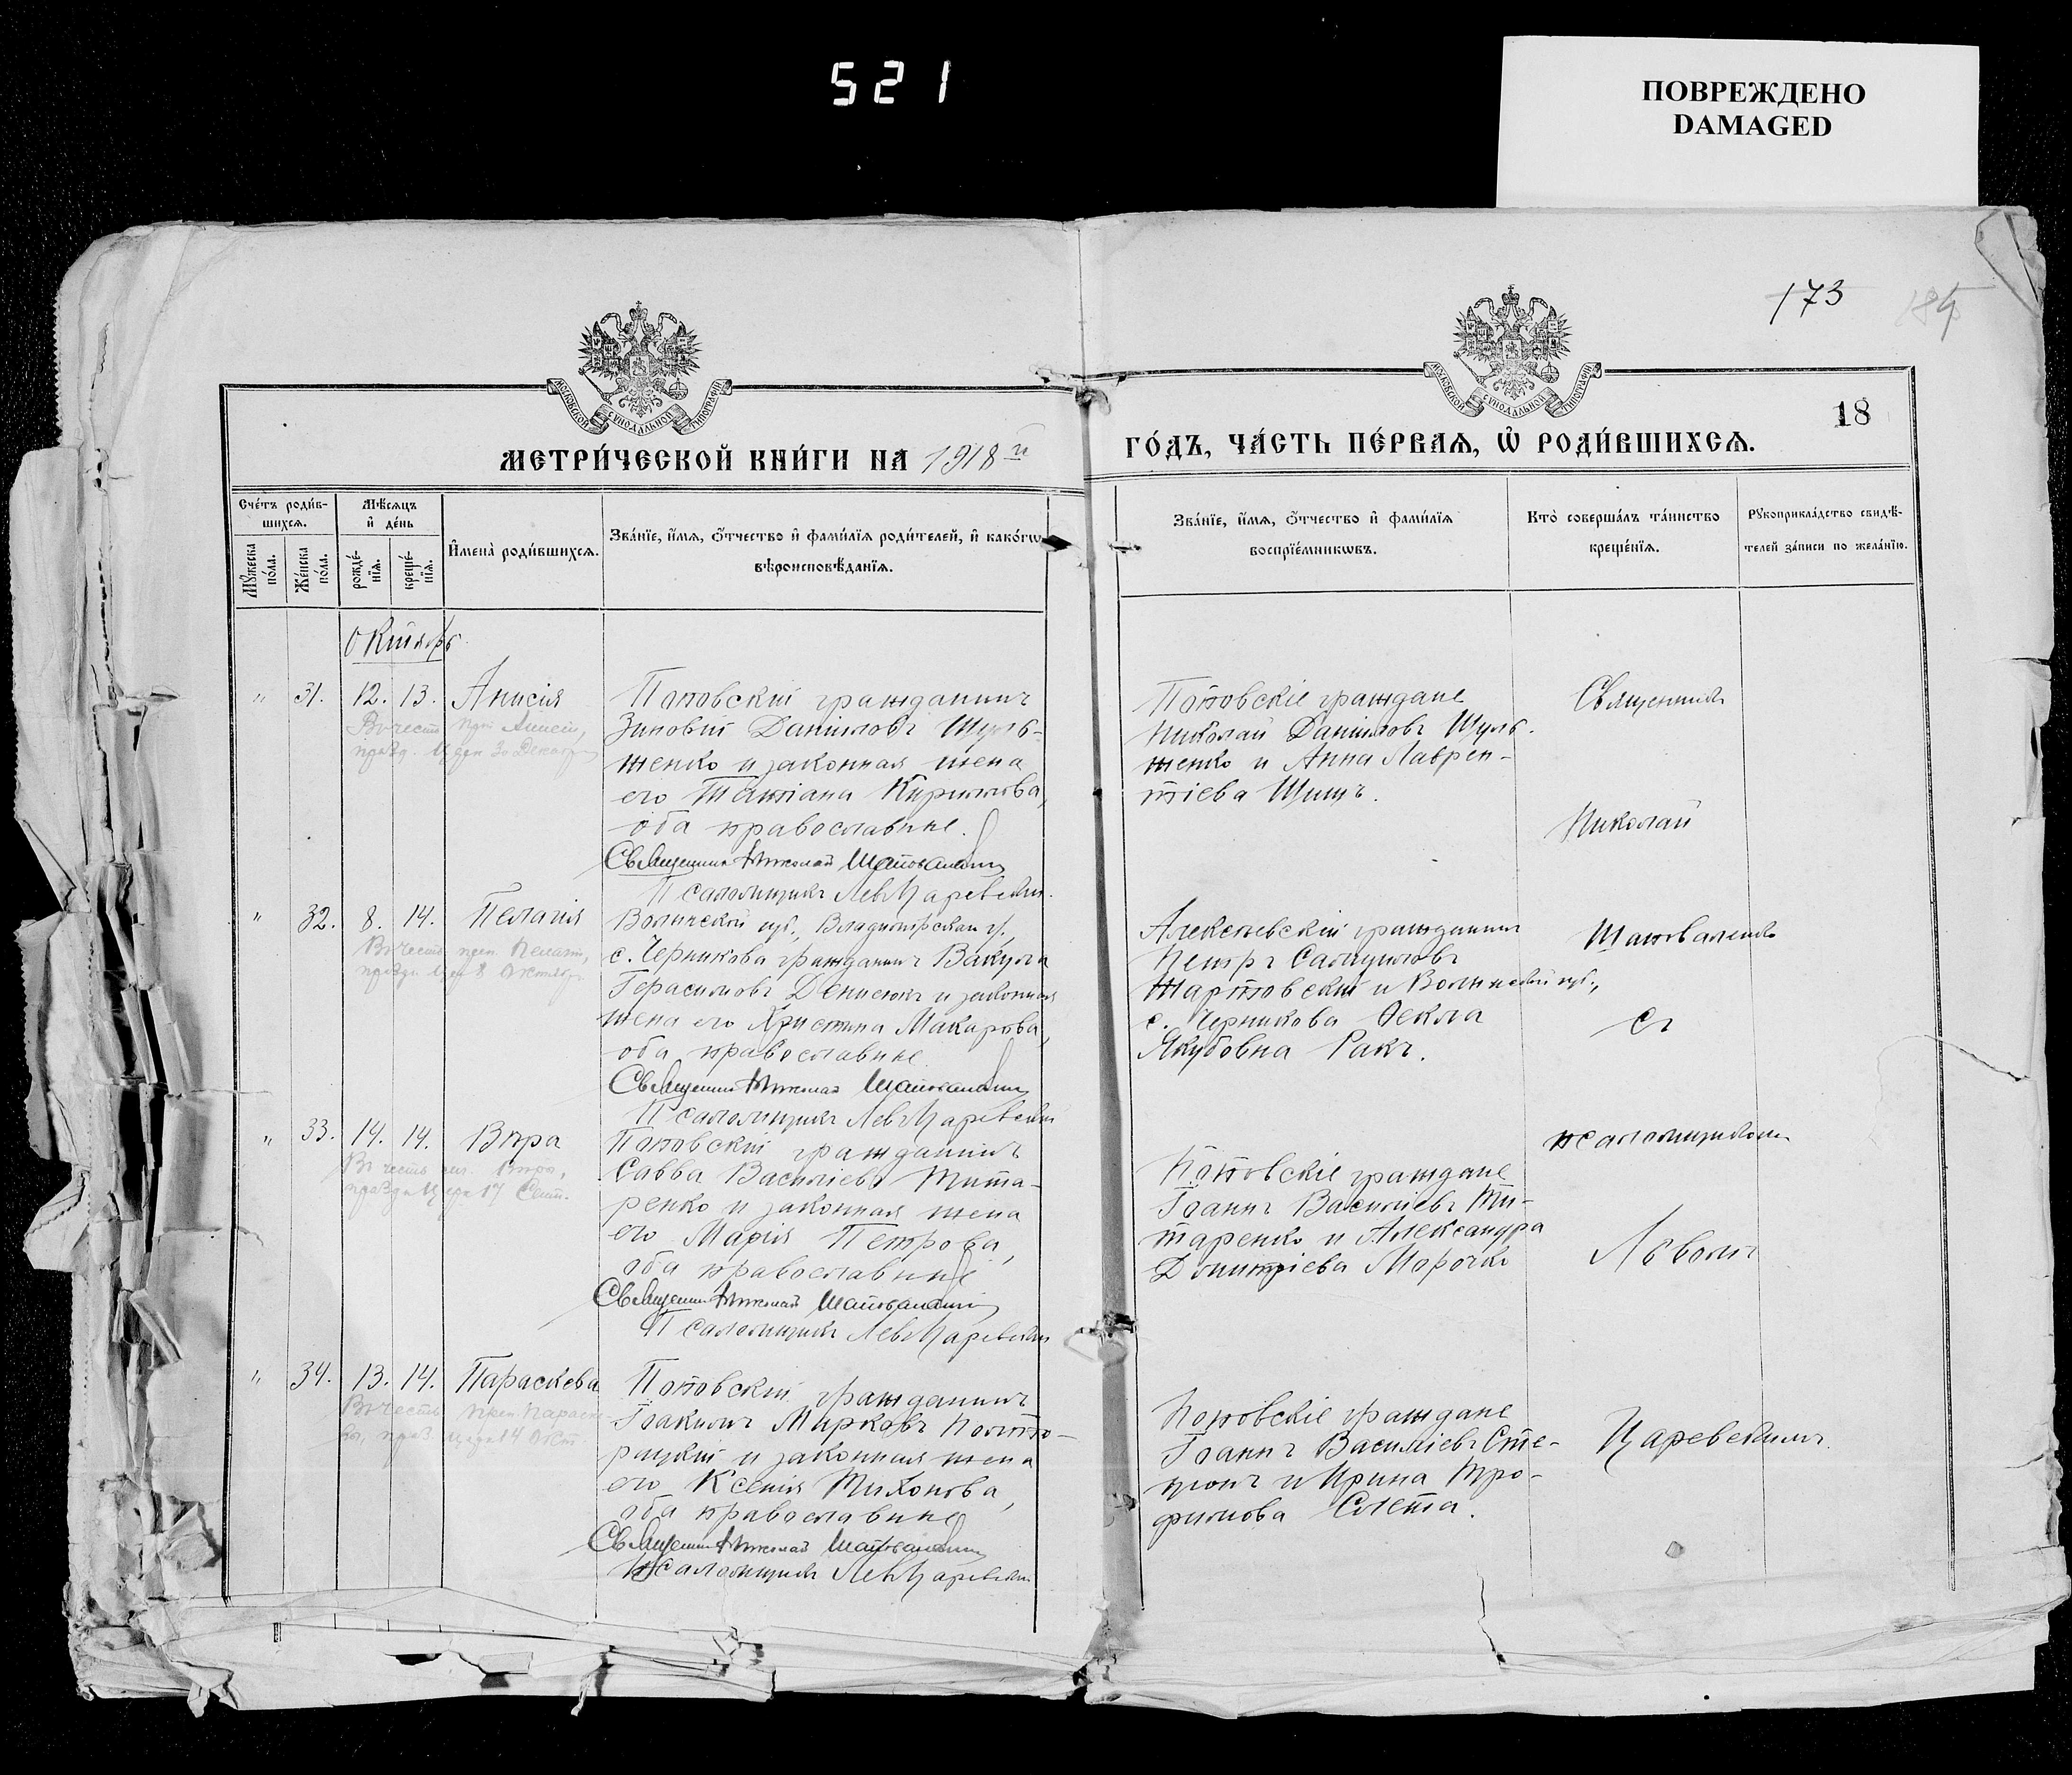 521
ПОВРЕЖДЕНО
DAMAGED
173
184
18
МОСКОВСКОЙ СѴНОДАЛЬНОЙ ТИПОГРАФІИ
МОСКОВСКОЙ СѴНОДАЛЬНОЙ ТИПОГРАФІИ
МЕТРИ́ЧЕСКОЙ КНИ́ГИ НА 1918 й
ГО́ДЪ, ЧА́СТЬ ПЕ́РВАѦ, Ѡ҆ РОДИ́ВШИХСѦ.
Сче́тъ роди́в-
шихсѧ.
Мꙋ́жеска по́ла.
Же́нска по́ла.
Мѣ́сѧцъ
и҆ де́нь
рожде́-
нїѧ.
креще́-
нїѧ.
И҆мена̀ роди́вшихсѧ.
Зва́нїе, и҆́мѧ, ѻ҆́тчество и҆ фами́лїѧ роди́телей, и҆ како́гѡ
вѣроисповѣ́данїѧ.
Зва́нїе, и҆́мѧ, ѻ҆́тчество и҆ фами́лїѧ
воспрїе́мникѡвъ.
Кто̀ соверша́лъ та́инство
креще́нїѧ.
Рꙋкоприкла́дство свидѣ́-
телей за́писи по жела́нїю.
Октябрь
" 31. 12. 13. Анисія
Въ честь прп. Анисіи,
празд. Цер. 30 Декабря
Поповскій гражданинъ
Зиновій Даніиловъ Шуль-
женко и законная жена
его Татіана Кириллова,
оба православные.
Священникъ Николай Шаповаленко
Псаломщикъ Левъ Царевскій.
Поповскіе граждане
Николай Даніиловъ Шуль-
женко и Анна Лаврен-
тіева Шищъ.
Священникъ
Николай
" 32. 8. 14. Пелагія
Въ честь преп. Пелагіи,
празд. Цер 8 Октября
Волынской губ., Владимірскаго у.,
с. Черникова гражданинъ Вакула
Герасимовъ Денисюкъ и законная
жена его Христина Макарова,
оба православные
Священникъ Николай Шаповаленко
Псаломщикъ Левъ Царевскій
Алексѣевскій гражданинъ
Петръ Самуиловъ
Шартовскій и Волынской губ.,
с. Черникова Ѳекла
Якубовна Ракъ.
Шаповаленко
съ
" 33. 14. 14. Вѣра
Въ честь Вѣры,
празд. Церк 17 Сент.
Поповскій гражданинъ
Савва Василіевъ Тита-
ренко и законная жена
его Марія Петрова,
оба православные
Священникъ Николай Шаповаленко
Псаломщикъ Левъ Царевскій
Поповскіе граждане
Іоаннъ Василіевъ Ти-
таренко и Александра
Димитріева Морочко
псаломщикомъ
Львомъ
" 34. 13. 14. Параскева
Въ честь преп. Параске-
вы, праз. Церк 14 Окт
Поповскій гражданинъ
Іоакимъ Марковъ Полто-
рацкій и законная жена
его Ксенія Тихонова,
оба православные
Священникъ Николай Шаповаленко
Псаломщикъ Левъ Царевскій
Поповскіе граждане
Іоаннъ Василіевъ Сте-
цюкъ и Ирина Тро-
фимова Слета.
Царевскимъ.